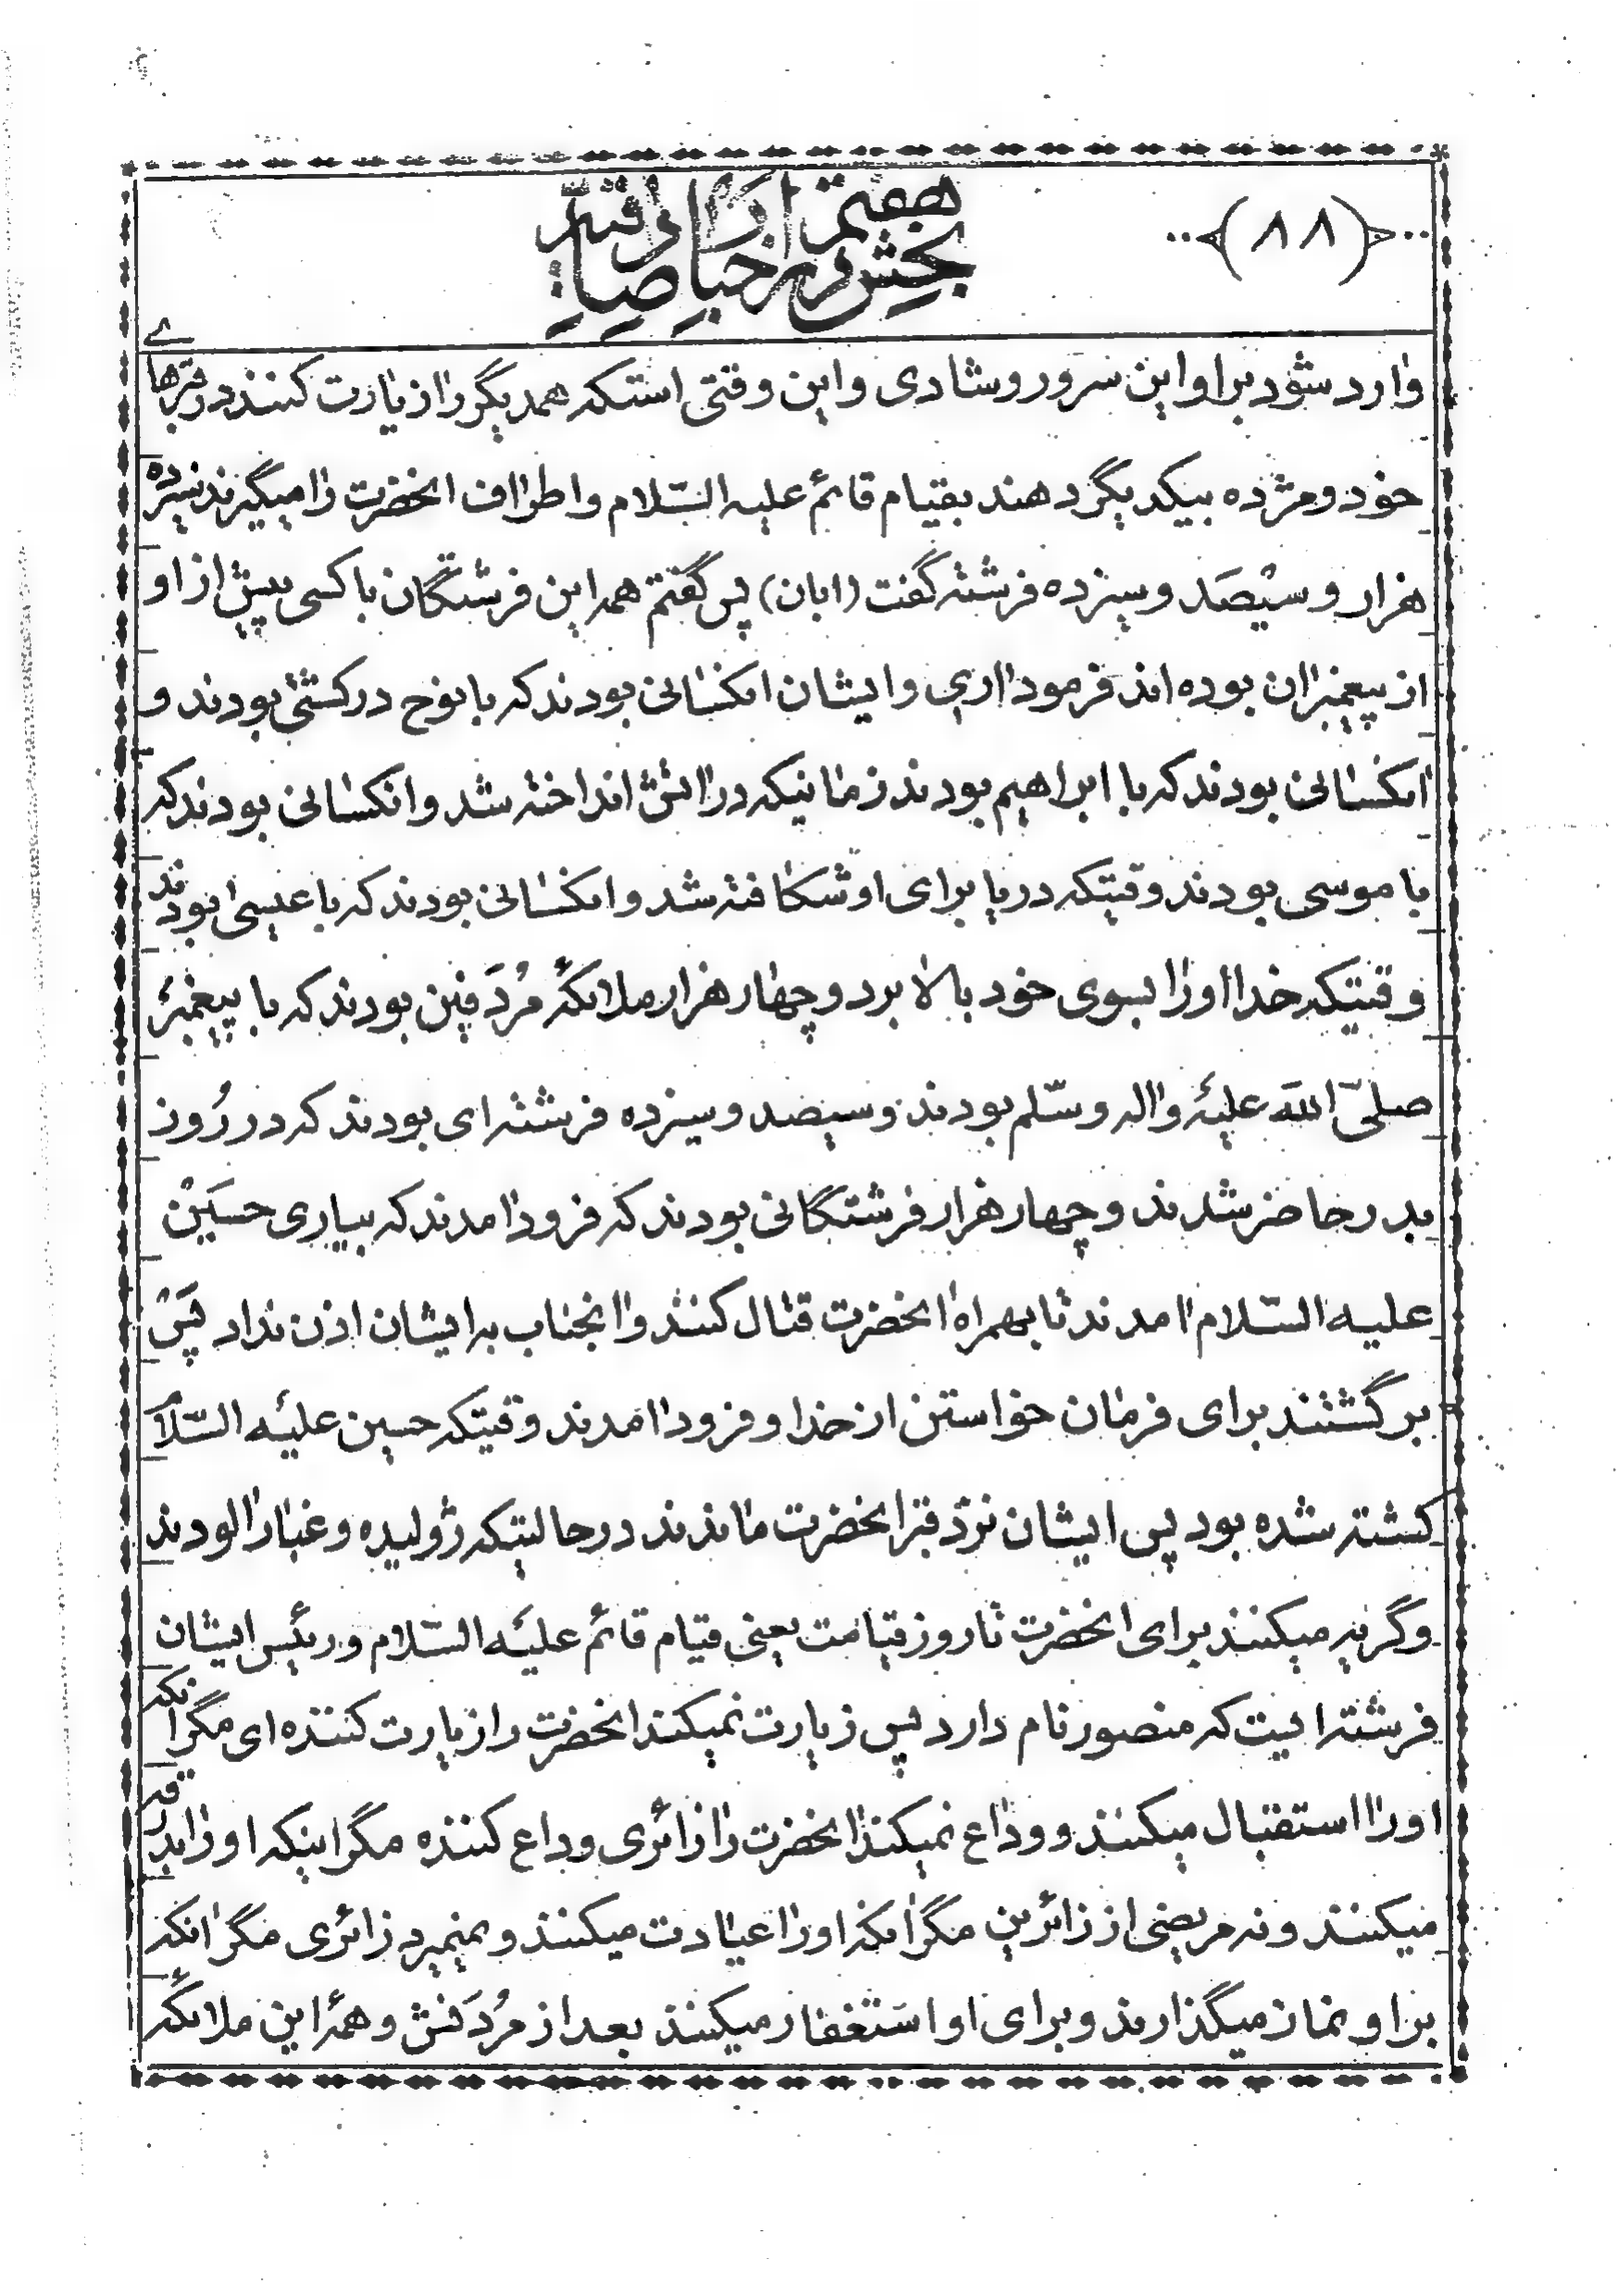 (۸۸)
بخش هفتم
وارد شود بر او این سرور و شادی و این وقتی استکه همدیگر را زیارت کنند در قبرها
خود و مژده بیکدیگر دهند بقیام قائم علیه السّلام و اطراف انحضرت را میگیرند سیزده
هزار و سیصَد و سیزده فرشته گفت (ابان) پس گفتم همه این فرشتگان با کسی پیش از او
از پیغمبران بوده اند فرمود اری و ایشان انکسانی بودند که با نوح در کشتی بودند و
انکسانی بودند که با ابراهیم بودند زمانیکه در اتش انداخته شد و انکسانی بودند که
با موسی بودند وقتیکه دریا برای او شکافته شد و انکسانی بودند که با عیسی بودند
وقتیکه خدا او را بسوی خود بالا برد و چهار هزار ملائکهٔ مُردَفین بودند که با پیغمبر
صلّی الله علیه و اله و سلّم بودند و سیصد و سیزده فرشته ای بودند که در رُوز
بدر حاضر شدند و چهار هزار فرشتگانی بودند که فرود امدند که بیاری حسین
علیه السّلام امدند تا بهمراه انحضرت قتال کنند و انجناب به ایشان اذن نداد پَس
برگشتند برای فرمان خواستن از خدا و فرود امدند وقتیکه حسین علیه السّلام
کشته شده بود پس ایشان نزد قبر انحضرت ماندند در حالتیکه ژولیده و غبار الودند
و گریه میکنند برای انحضرت تا روز قیامت یعنی قیام قائم علیه السّلام و رئیس ایشان
فرشته ایست که منصور نام دارد پس زیارت نمیکند انحضرت را زیارت کننده ای مگر انکه
او را استقبال میکنند و وداع نمیکند انحضرت را زائری وداع کننده مگر اینکه او را بدرقه
میکنند و نه مریضی از زائرین مگر انکه او را عیادت میکنند و نمیمیرد زائری مگر انکه
بر او نماز میگذارند و برای او استغفار میکنند بعد از مُردَنش و همهٔ این ملائکه